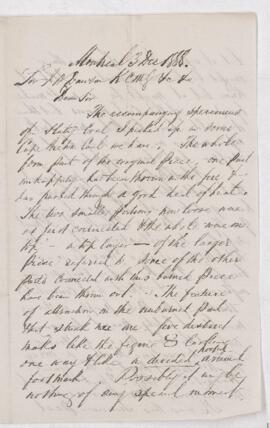 Montreal 3 Dec 1888.
Sir J W Dawson K C M G &c &c
Dear Sir
The accompanying specimens
of Slaty Coal I picked up in some
Cape Breton Coal we have. The whole
form part of the original piece, one part
unhappily has been thrown in the fire &
has passed through a good deal of heat.
The two smaller portions now loose were
at first connected & the whole was on
top – a top layer – of the larger
piece referred to. Some of the other
parts connected with this burned piece
have been thrown out. The feature
of attraction in the unburned part
that struck me are five distinct
marks like the figure 8 looking
one way & like a divided animal
footmark. Possibly it might be
nothing of any special moment